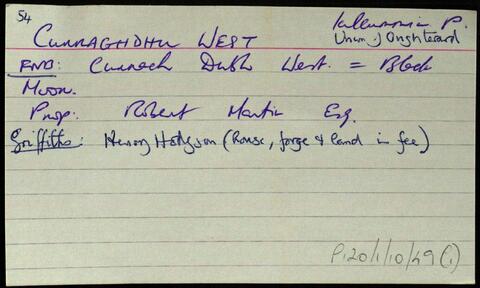 54
Killannin P.
CURRAGHDHU WEST
Union of Oughterard
FNB: Currach Dubh West. = Black
Moor.
Prop: Robert Martin Esq.
Griffiths: Henry Hodgson (house, forge & land in fee)
P120/1/10/49 (1)